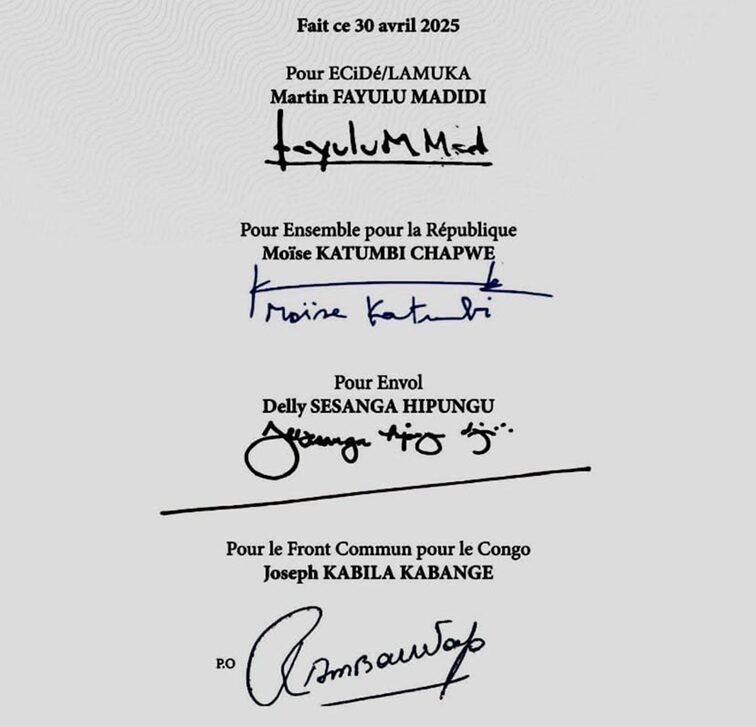 Fait ce 30 avril 2025
Pour ECiDé/LAMUKA
Martin FAYULU MADIDI
fayulu M Mad
Pour Ensemble pour la République
Moïse KATUMBI CHAPWE
Moïse Katumbi
Pour Envol
Delly SESANGA HIPUNGU
Sesanga
Pour le Front Commun pour le Congo
Joseph KABILA KABANGE
P.O